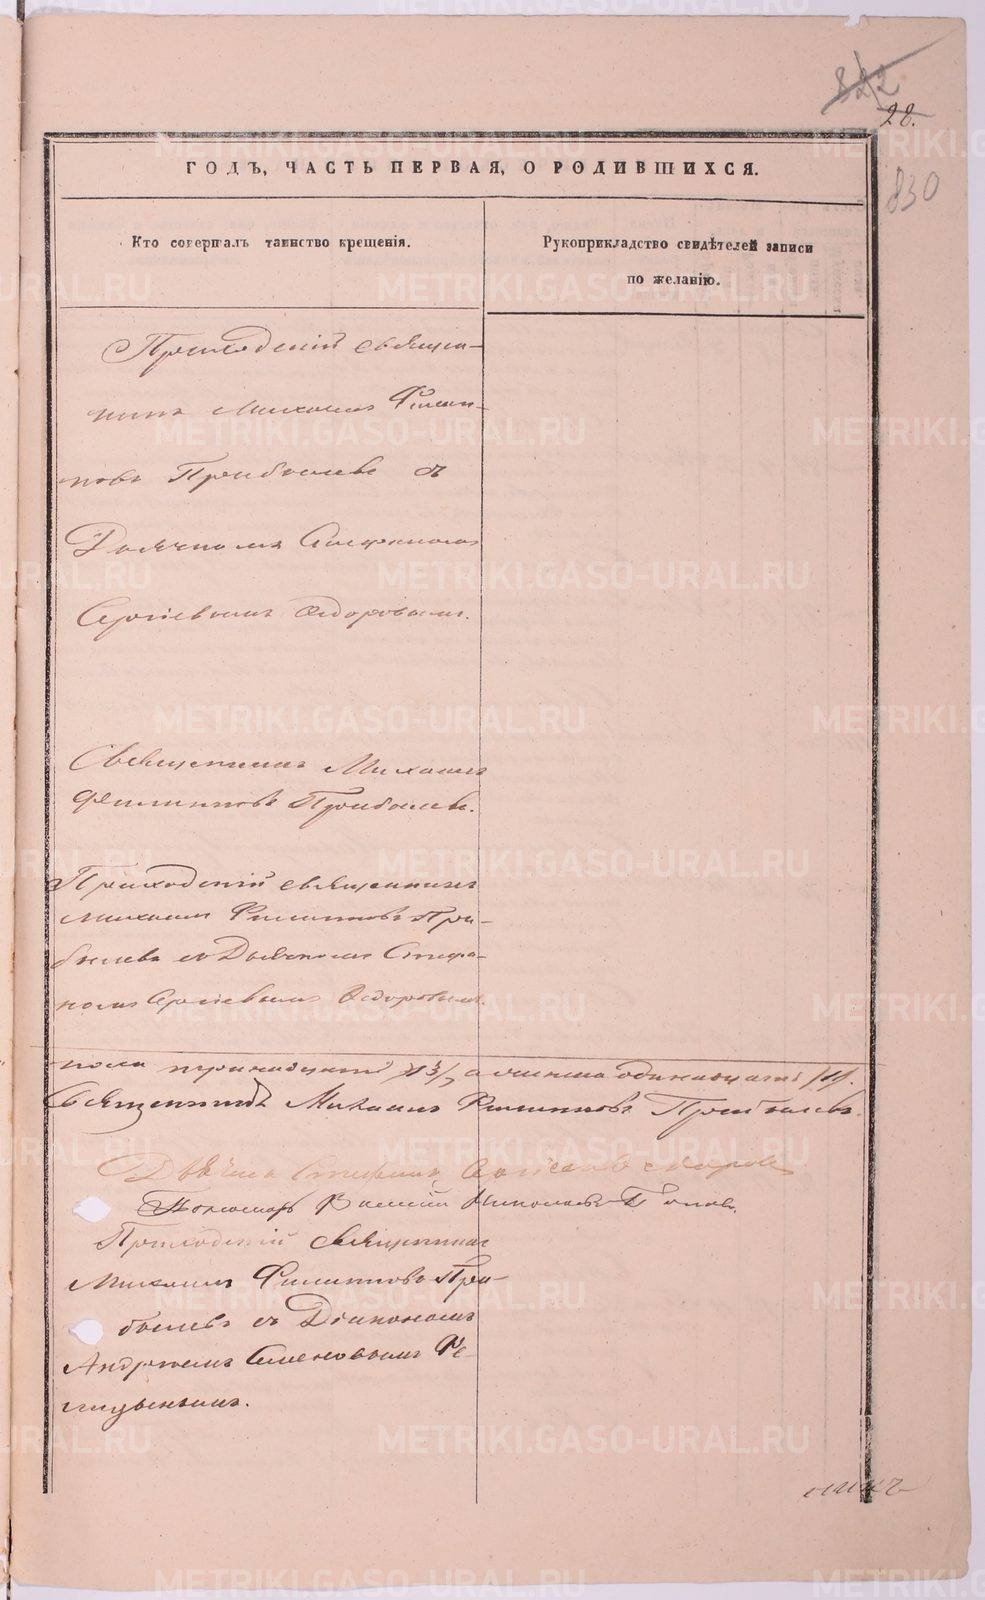 822
28.
830
ГОДЪ, ЧАСТЬ ПЕРВАЯ, О РОДИВШИХСЯ.
Кто совершалъ таинство крещенія.
Рукоприкладство свидѣтелей записи
по желанію.
Приходскій священ-
никъ Михаилъ Филип-
повъ Прибылевъ съ
Дьячкомъ Стефаномъ
Сергіевымъ Ѳедоровымъ.
Священникъ Михаилъ
Филипповъ Прибылевъ.
Приходскій священникъ
Михаилъ Филипповъ При-
былевъ съ Дьячкомъ Стефа-
номъ Сергіевымъ Ѳедоровымъ.
пола тринадцать /13/, а одинадцать /11/.
Священникъ Михаилъ Филипповъ Прибылевъ.
Дьячекъ Стефанъ Сергіевъ Ѳедоровъ
Пономарь Николаевъ Поповъ.
Приходскій священникъ
Михаилъ Филипповъ При-
былевъ съ Діакономъ
Андреемъ Семеновымъ
METRIKI.GASO-URAL.RU